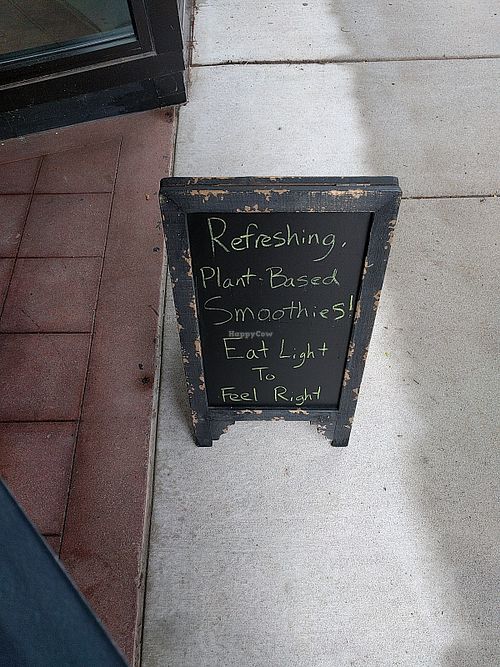 Refreshing,
Plant-Based
Smoothies!
HappyCow
Eat Light
To
Feel Right